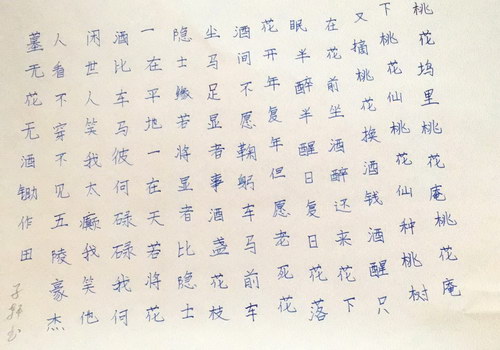 桃花坞里桃花庵桃花庵
下桃花仙桃花仙种桃树
又摘桃花换酒钱酒醒只
在花前坐酒醉还来花下
眠半醉半醒日复日花落
花开年复年但愿老死花
酒间不愿鞠躬车马前车
尘马足显者事酒盏花枝
隐士缘若将显者比隐士
一在平地一在天若将花
酒比车马彼何碌碌我何
闲世人笑我太癫我笑他
人看不穿不见五陵豪杰
墓无花无酒锄作田